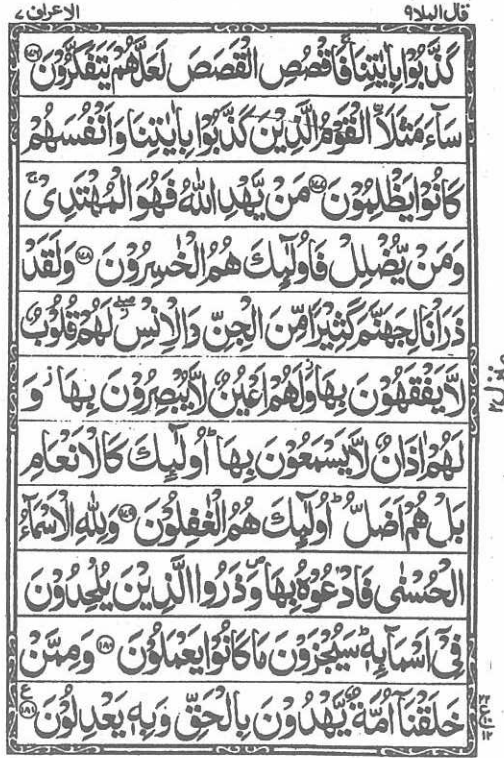 قال الملا ٩ الاعراف ٧
كَذَّبُوْا بِاٰيٰتِنَا ۚ فَاقْصُصِ الْقَصَصَ لَعَلَّهُمْ يَتَفَكَّرُوْنَ ﴿۱۷۶﴾
سَآءَ مَثَلَا ِۨالْقَوْمُ الَّذِيْنَ كَذَّبُوْا بِاٰيٰتِنَا وَاَنْفُسَهُمْ
كَانُوْا يَظْلِمُوْنَ ﴿۱۷۷﴾ مَنْ يَّهْدِ اللّٰهُ فَهُوَ الْمُهْتَدِىْ ۚ
وَمَنْ يُّضْلِلْ فَاُولٰٓئِكَ هُمُ الْخٰسِرُوْنَ ﴿۱۷۸﴾ وَلَقَدْ
ذَرَاْنَا لِجَهَنَّمَ كَثِيْرًا مِّنَ الْجِنِّ وَالْاِنْسِ ۖ لَهُمْ قُلُوْبٌ
لَّا يَفْقَهُوْنَ بِهَا ۚ وَلَهُمْ اَعْيُنٌ لَّا يُبْصِرُوْنَ بِهَا ۚ وَ
لَهُمْ اٰذَانٌ لَّا يَسْمَعُوْنَ بِهَا ؕ اُولٰٓئِكَ كَالْاَنْعَامِ
بَلْ هُمْ اَضَلُّ ؕ اُولٰٓئِكَ هُمُ الْغٰفِلُوْنَ ﴿۱۷۹﴾ وَلِلّٰهِ الْاَسْمَآءُ
الْحُسْنٰى فَادْعُوْهُ بِهَا ۪ وَذَرُوا الَّذِيْنَ يُلْحِدُوْنَ
فِىْٓ اَسْمَآئِهٖ ؕ سَيُجْزَوْنَ مَا كَانُوْا يَعْمَلُوْنَ ﴿۱۸۰﴾ وَمِمَّنْ
خَلَقْنَاۤ اُمَّةٌ يَّهْدُوْنَ بِالْحَقِّ وَبِهٖ يَعْدِلُوْنَ ﴿۱۸۱﴾ ع